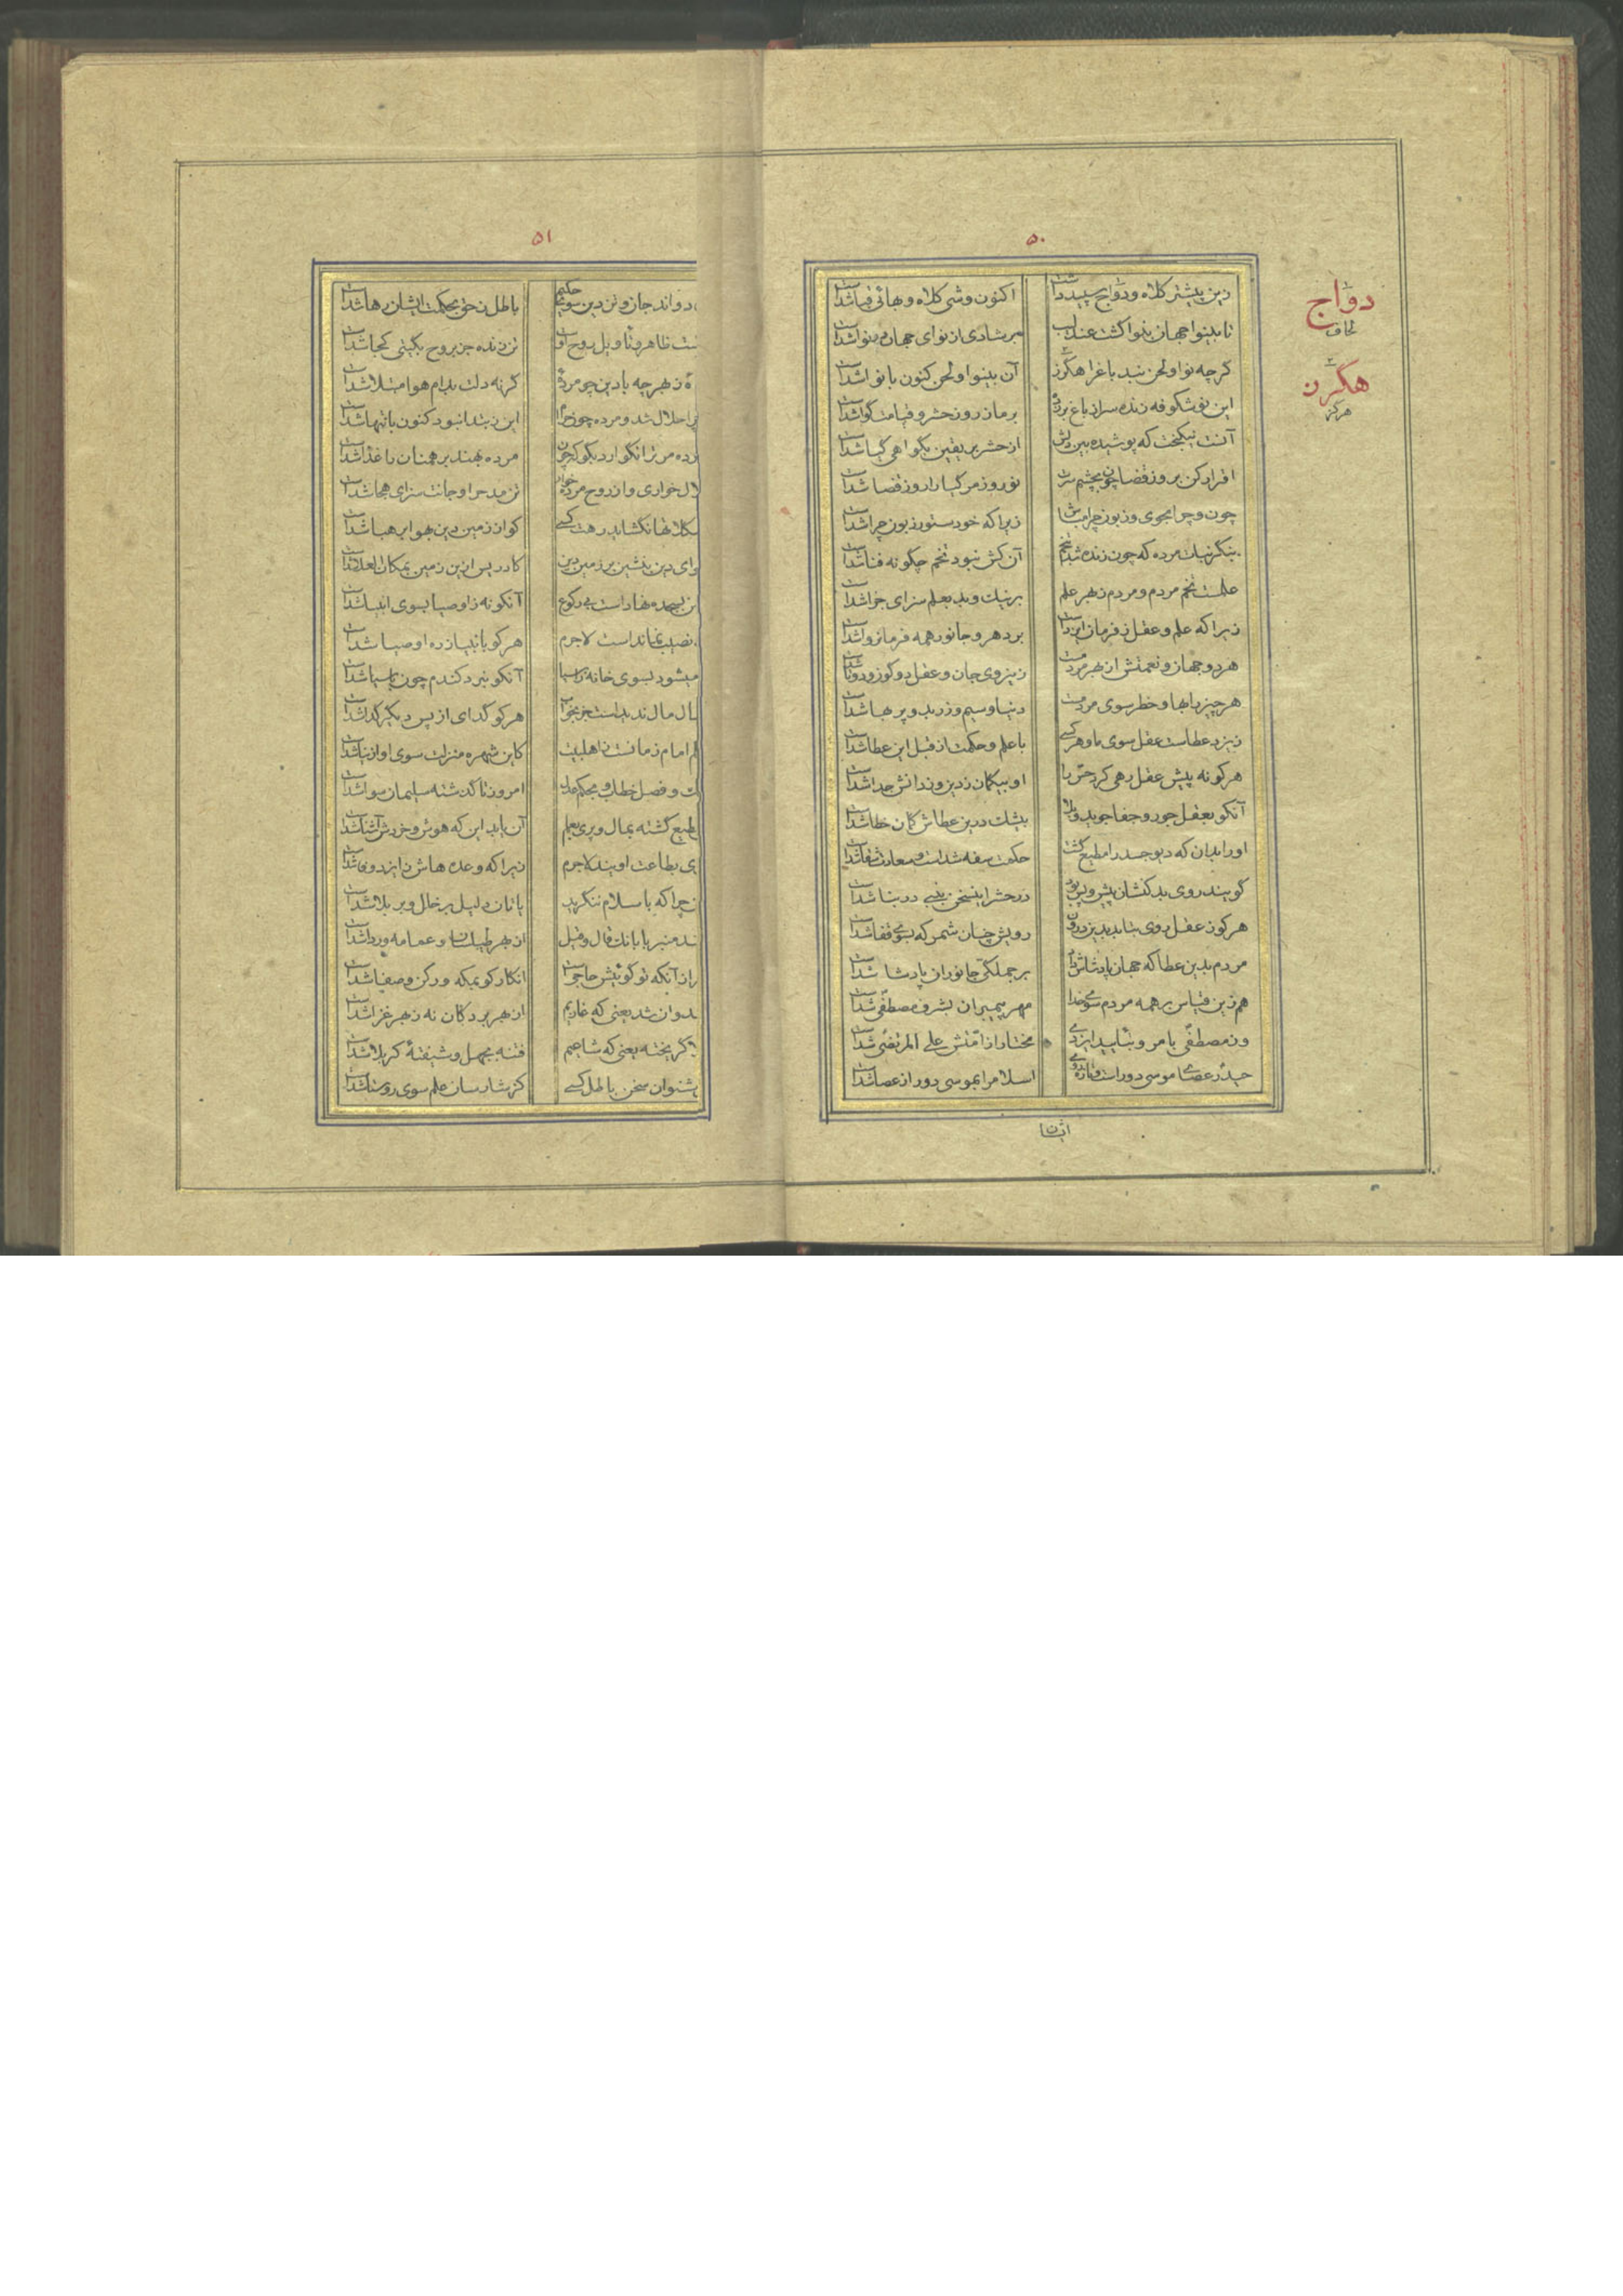 ۵۰
زین پیشتر کلاه و دواج سپید داشت اکنون وشی کلاه و بهائی قبا شداست
تا بینوا جهان بنوا گشت عندلیب پر شادی از نوای جهان بینوا شداست
گرچه نوا و لحن نبد باغ را هگرز آن بینوا و لحن کنون با نوا شداست
این نو شکوفه زنده سر از باغ بر زده بر ما ز روز حشر و قیامت گوا شداست
آنت نیکبخت که پوشیده بین دلش از حشر بر یقین بگواهی گیا شداست
اقرار کن بروز قضا چون بچشم سرت نوروز مر گیا را روز قضا شداست
چون و چرا بجوی و زبون چرا مباش زیرا که خود ستور زبون چرا شداست
بنگر نبات مرده که چون زنده شد بتخم آن کش نبود تخم چگونه فنا شداست
علمست تخم مردم و مردم ز بهر علم بر نیک و بد بعلم سزای جزا شداست
زیرا که علم و عقل ز فرمان ایزداست بر دهر و جانور همه فرمانروا شداست
هر دو جهان و نعمتش از بهر مردمست زین روی جان و عقل دو گوز و دوتا شداست
هر چیز با بها و خطر سوی مردمست دنیا و سیم و زر بدو پر بها شداست
زیزد عطاست عقل سوی ما و هر کسی با علم و حکمت از قبل این عطا شداست
هر گونه پیش عقل رهی کرد حق را او بیگمان ز دین و ز دانش جدا شداست
آنکو بعقل جور و جفا جوید و بلا بیشک درین عطاش گمان خطا شداست
او را بدان که دیو جسد را مطیع گشت حکمت سفه شداست و سعادت شقا شداست
گویند روی بدکنشان پیش و پس بود در حشر این سخن بنبی در بنا شداست
هر کو ز عقل روی بتابد بدین درون رویش چنان شمر که بسوی قفا شداست
مردم بدین عطا که جهان پادشاش داد بر جملگی جانوران پادشا شداست
هم زین قیاس بر همه مردم سوی خدا مهر پیمبران بشرف مصطفی شداست
وز مصطفی بامر و بتأیید ایزدی مختار از امتش علی المرتضی شداست
حیدر عصای موسی دور است و تازه روی اسلام را بموسی دور از عصا شداست
ایشان
دواج
لحاف
هگرز
هرگز
۵۱
دواند جان و تن دین سوی حکیم باطل ز حق بحکمت ایشان رها شداست
ظاهر و تأویل روح او تن زنده جز بروح بگیتی کجا شداست
ز بهر چه با دین چو مرده گرنه دلت بدام هوا مبتلا شداست
حلال شد و مرده چون حرام این زبتدا نبود کنون بانتها شداست
مرده مر ترا نگوارد بگو که چون مرده بهند بر همنان را غذا شداست
خواری و از روح مرده خوار تن مدح را و جانت سزای هجا شداست
نگشاید رهت کسی کو از زمین دین بهوا بر هبا شداست
دین بنشین بر زمین دین کادریس ازین زمین بمکان العلا شداست
بسجده نهاداست بی رکوع آنکو نه ز اوصیا بسوی انبیا شداست
نصیب نمانداست لاجرم هر کو بانبیا ز ره اوصیا شداست
میشود بسوی خانه ز آسیا آنکو نبرد گندم چون بآسیا شداست
مال ندیداست جز بخواب هر کو گدای از پس دیگر گدا شداست
امام زمانست ز اهل بیت کاین شهره منزلت سوی او از نبا شداست
و فصل خطاب و محکم علم امروز تا گذشته سلیمان سوا شداست
گشته بمال و پری بعلم آن باید این که هوش و خردش آشنا شداست
بطاعت اویند لاجرم زیرا که وعده هاش ز ایزد وفا شداست
چرا که باسلام ننگرید یا نان دلیل بر خال و بر بلا شداست
منبر با بانک قال و قیل از بهر طیلسان و عمامه و ردا شداست
از آنکه تو گوئیش حاجی است انکار کو بمکه و رکن و صفا شداست
شد یعنی که غازیم از بهر بردگان نه ز بهر غزا شداست
بگریخته یعنی که شاعیم فتنه بجهل و شیفتهٔ کربلا شداست
بشنوان سخن باطل کسی کز شارسان علم سوی روستا شداست